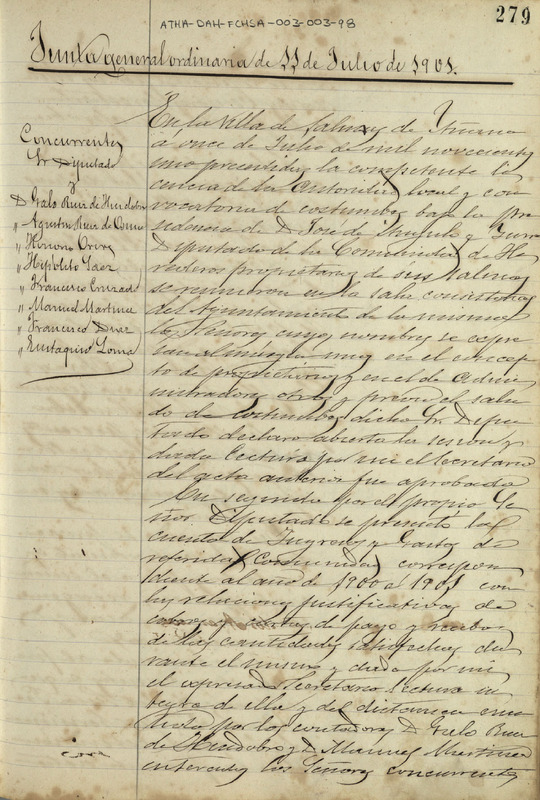 279
ATHA-DAH-FCHSA-003-003-98
Junta general ordinaria de 11 de Julio de 1901.
Concurrentes
Sr Diputado
y
D Galo Ruiz de Huidobro
" Agustin Ruiz de
" Honorio
" Hipolito Saez
" Francisco
" Manuel Martinez
" Francisco
" Eustaquio Loma
En la Villa de Salinas de Añana
a once de Julio de mil novecientos
uno precedida la competente li
cencia de la Autoridad local y con
vocatoria de costumbre bajo la pre
sidencia de D José de y
Diputado de la Comunidad de He
rederos propietarios de sus Salinas
se reunieron en la sala consistorial
del Ayuntamiento de la misma
los Señores cuyos nombres se espre
san al margen unos en el concep
to de propietarios y en el de admi
nistradores otros y previo el salu
do de costumbre dicho Sr Dipu
tado declaro abierta la sesion y
dada lectura por mi el Secretario
del acta anterior fue aprobada
En seguida por el propio Se
ñor Diputado se presentó la
cuenta de Ingresos y Gastos de
referida Comunidad correspon
diente al año de 1900 a 1901 con
las relaciones justificativas de
cargo y de pago y recibos
de las cantidades satisfechas du
rante el mismo y dada por mi
el espresado Secretario lectura in
tegra de ella y del dictamen emi
tido por los contadores D Galo Ruiz
de Huidobro y D Manuel Martinez
enterados los Señores concurrentes